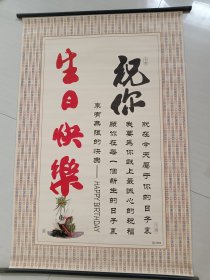 祝你
生日快樂
就在今天屬于你的日子裏
我要爲你獻上最誠心的祝福
願你在每一個新生的日子裏
享有無限的快樂——HAPPY BIRTHDAY